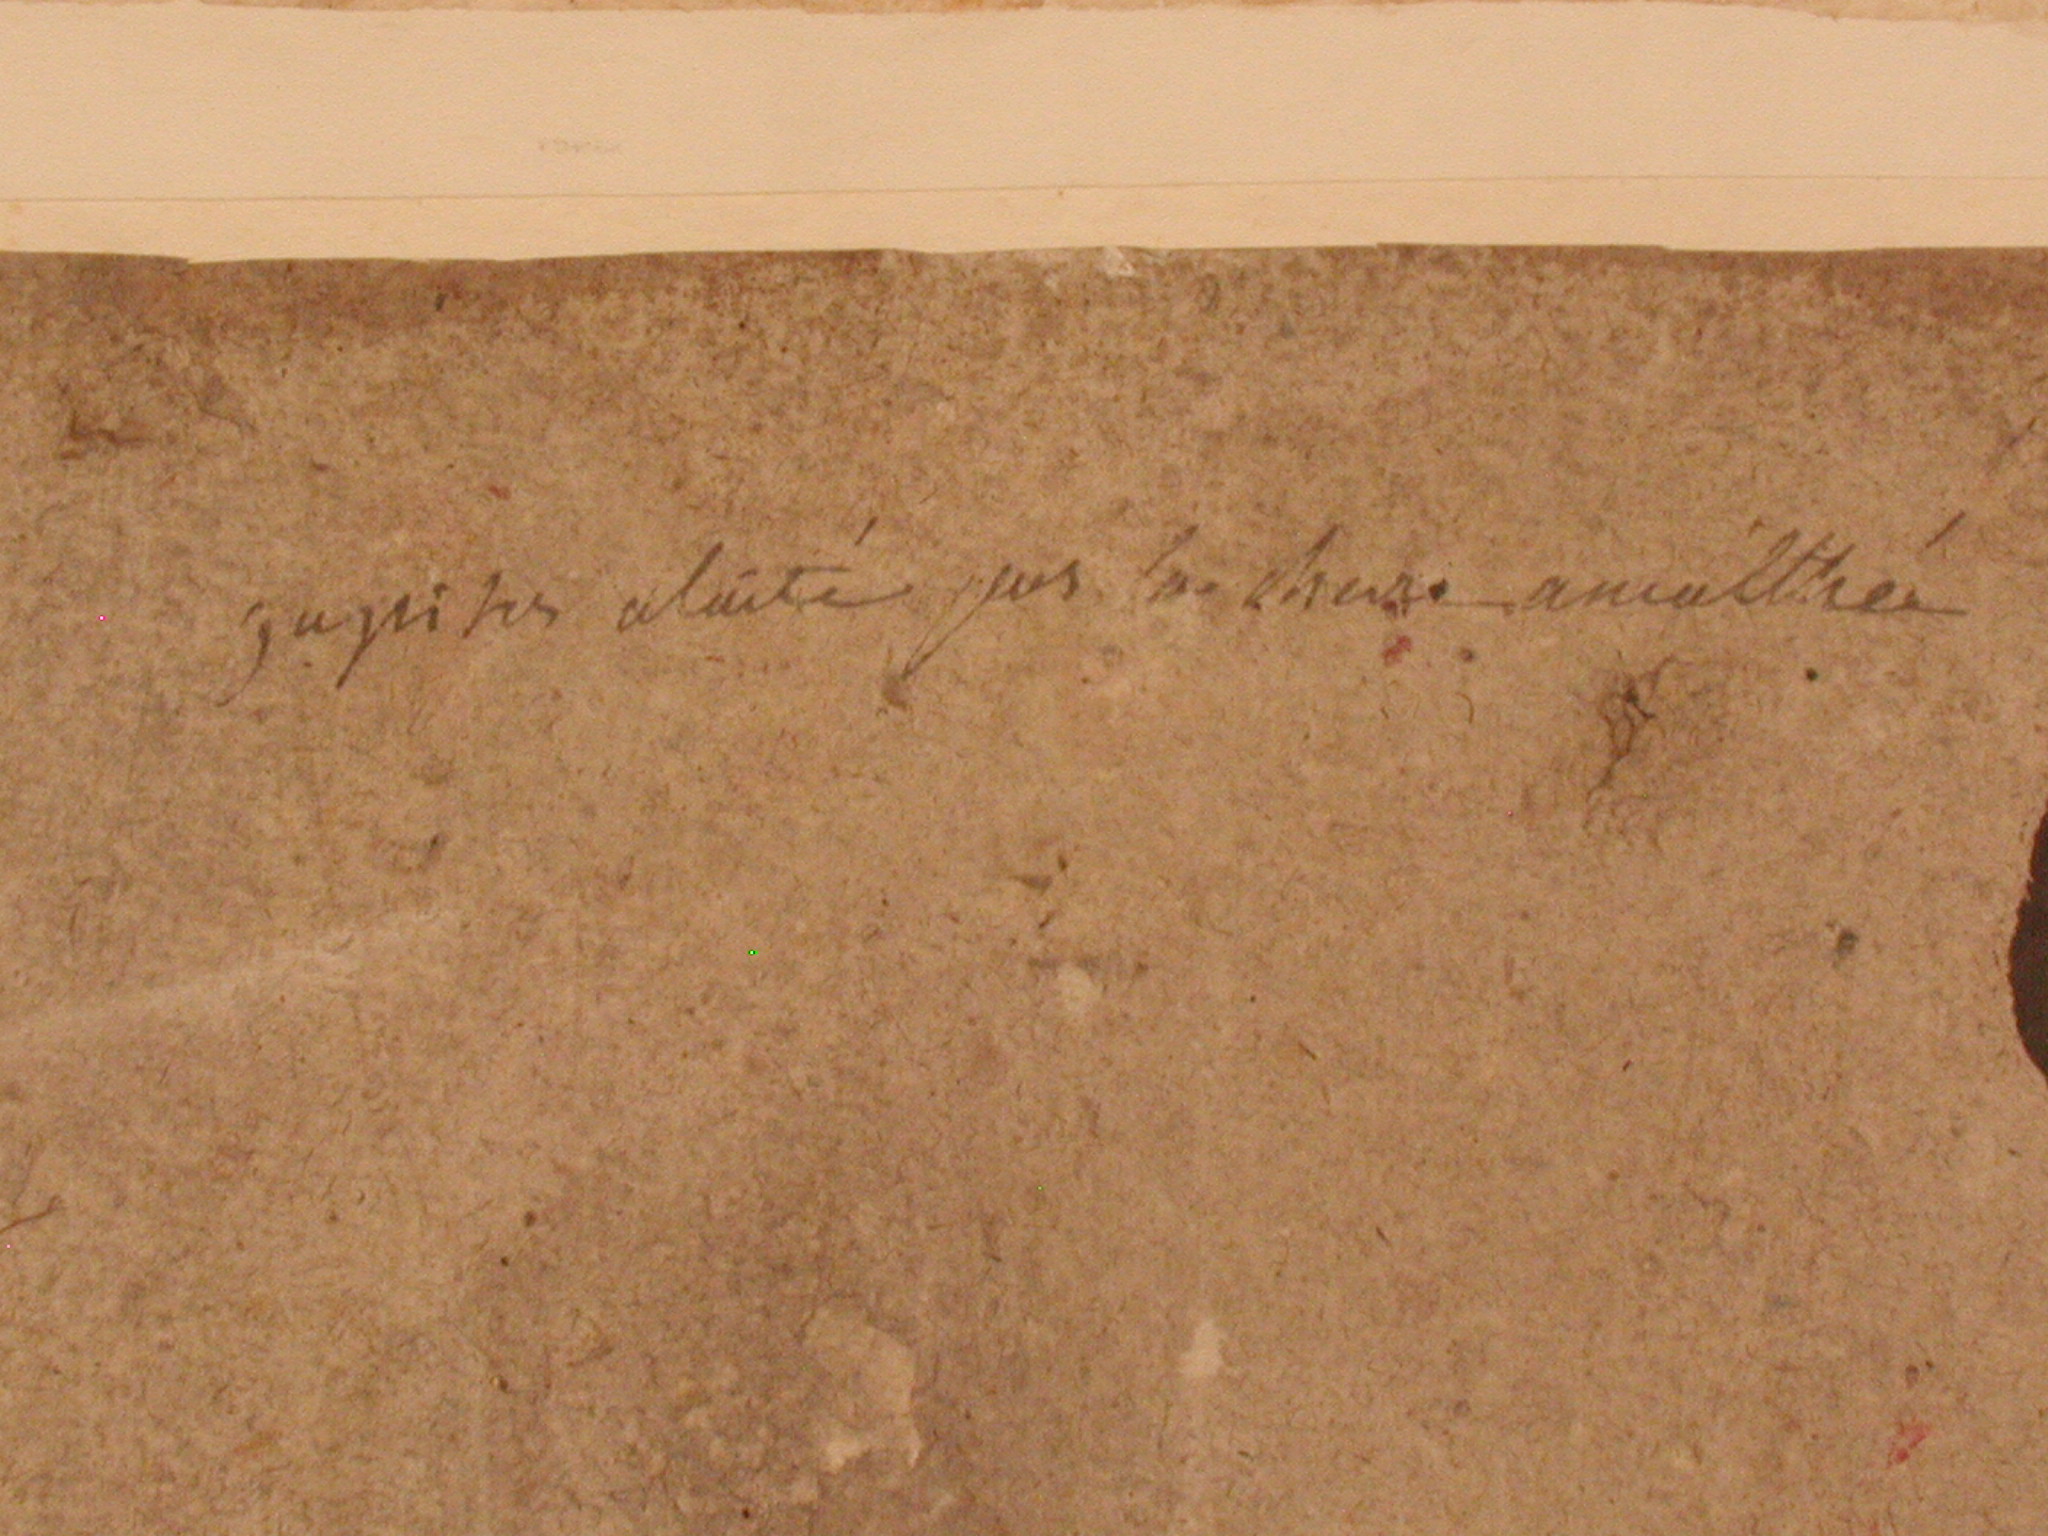 jupiter alaité par la chevre amalthée